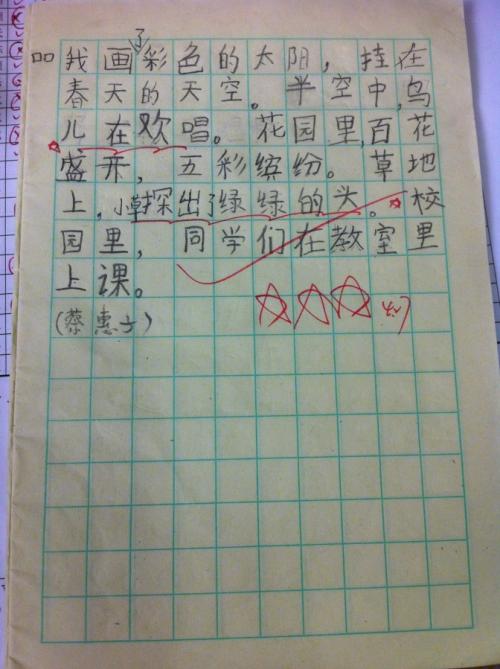 我画了彩色的太阳，挂在
春天的天空。半空中，鸟
儿在欢唱。花园里，百花
盛开，五彩缤纷。草地
上，小草探出了绿绿的头。校
园里，同学们在教室里
上课。
(蔡惠方)